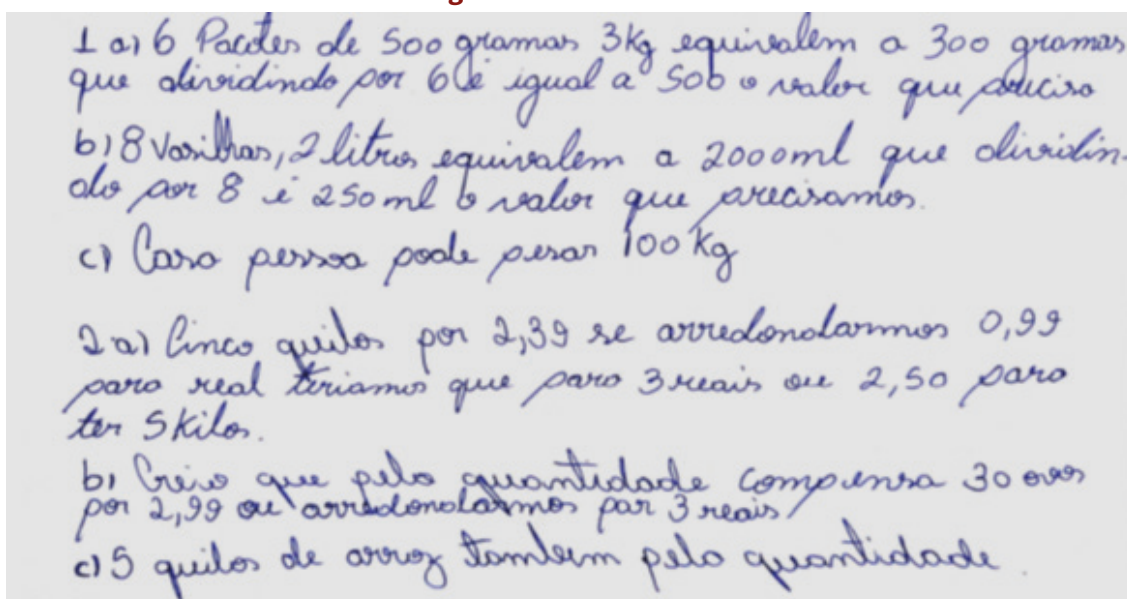 1 a) 6 Pacotes de 500 gramas 3kg equivalem a 300 gramas
que dividindo por 6 é igual a 500 o valor que preciso
b) 8 Vasilhas, 2 litros equivalem a 2000ml que dividin-
do por 8 é 250 ml o valor que precisamos.
c) Casa pessoa pode pesar 100 Kg
2 a) Cinco quilos por 2,39 se arredondarmos 0,99
para real teriamos que para 3 reais ou 2,50 para
ter 5 Kilos.
b) Creio que pela quantidade compensa 30 ovos
por 2,99 ou arredondarmos par 3 reais
c) 5 quilos de arroz tambem pela quantidade.